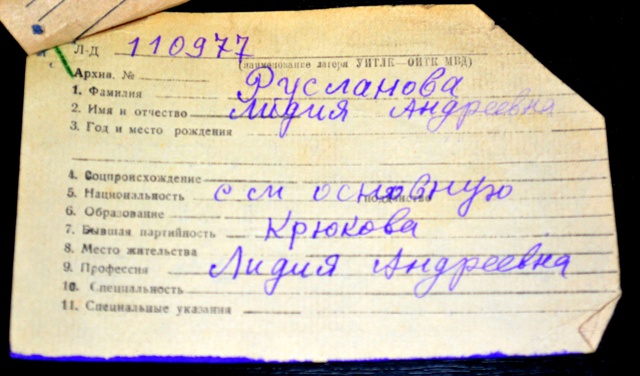 Л-Д 110977
(наименование лагеря УИТЛК—ОИТК МВД)
Архив. №
1. Фамилия Русланова
2. Имя и отчество Лидия Андреевна
3. Год и место рождения
4. Соцпроисхождение
5. Национальность см основную подданство
6. Образование
7. Бывшая партийность Крюкова
8. Место жительства
9. Профессия Лидия Андреевна
10. Специальность
11. Специальные указания